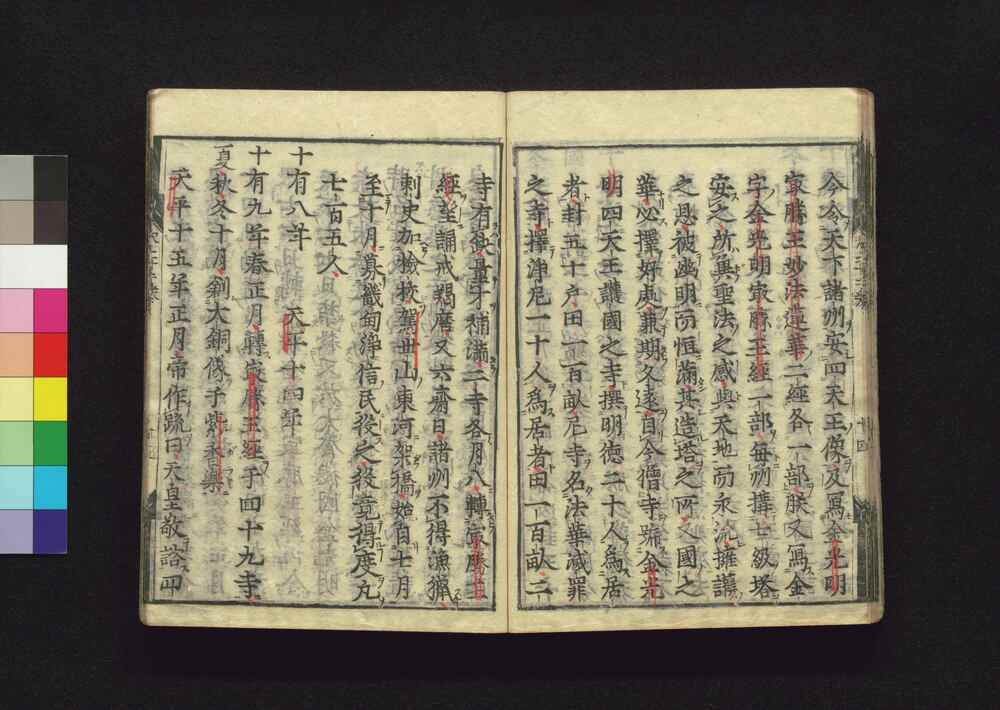 今令天下諸州安四天王像及寫金光明
最勝王妙法蓮華二經各一部朕又寫金
字金光明最勝王經一部每州搆七級塔
安之所冀聖法之感與天地而永流擁護
之恩被幽明而恒滿其造塔之所又國之
華必擇好處兼期久遠自今僧寺號金光
明四天王護國之寺撰明德二十人爲居
者封五十戶田一百畝尼寺名法華滅罪
之寺擇淨尼一十人爲居者田一百畝二
寺有缺量才補滿二寺各月八轉最勝王
經至誦戒羯磨又六齋日諸州不得漁獵
刺史加檢挍駕丗山東河架橋始自七月
至十月募畿甸淨信民役之役竟得度凡
七百五人
十有八年 天平十四年
十有九年春正月轉最勝王經于四十九寺
夏秋冬十月創大銅像于紫香樂
天平十五年正月帝作疏曰天皇敬諮四